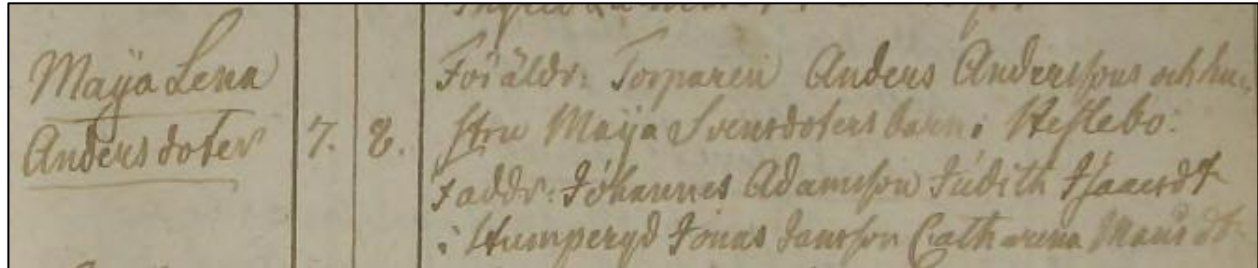 Maija Lena
Andersdoter
7. 8.
Föräldr: Torparen Anders Anderssons och hu-
stru Maija Svensdoters barn i Heslebo.
Faddr: Johannes Adamsson Judith Isaacsdt
i Humperyd Jonas Jansson Catharina Månsdt